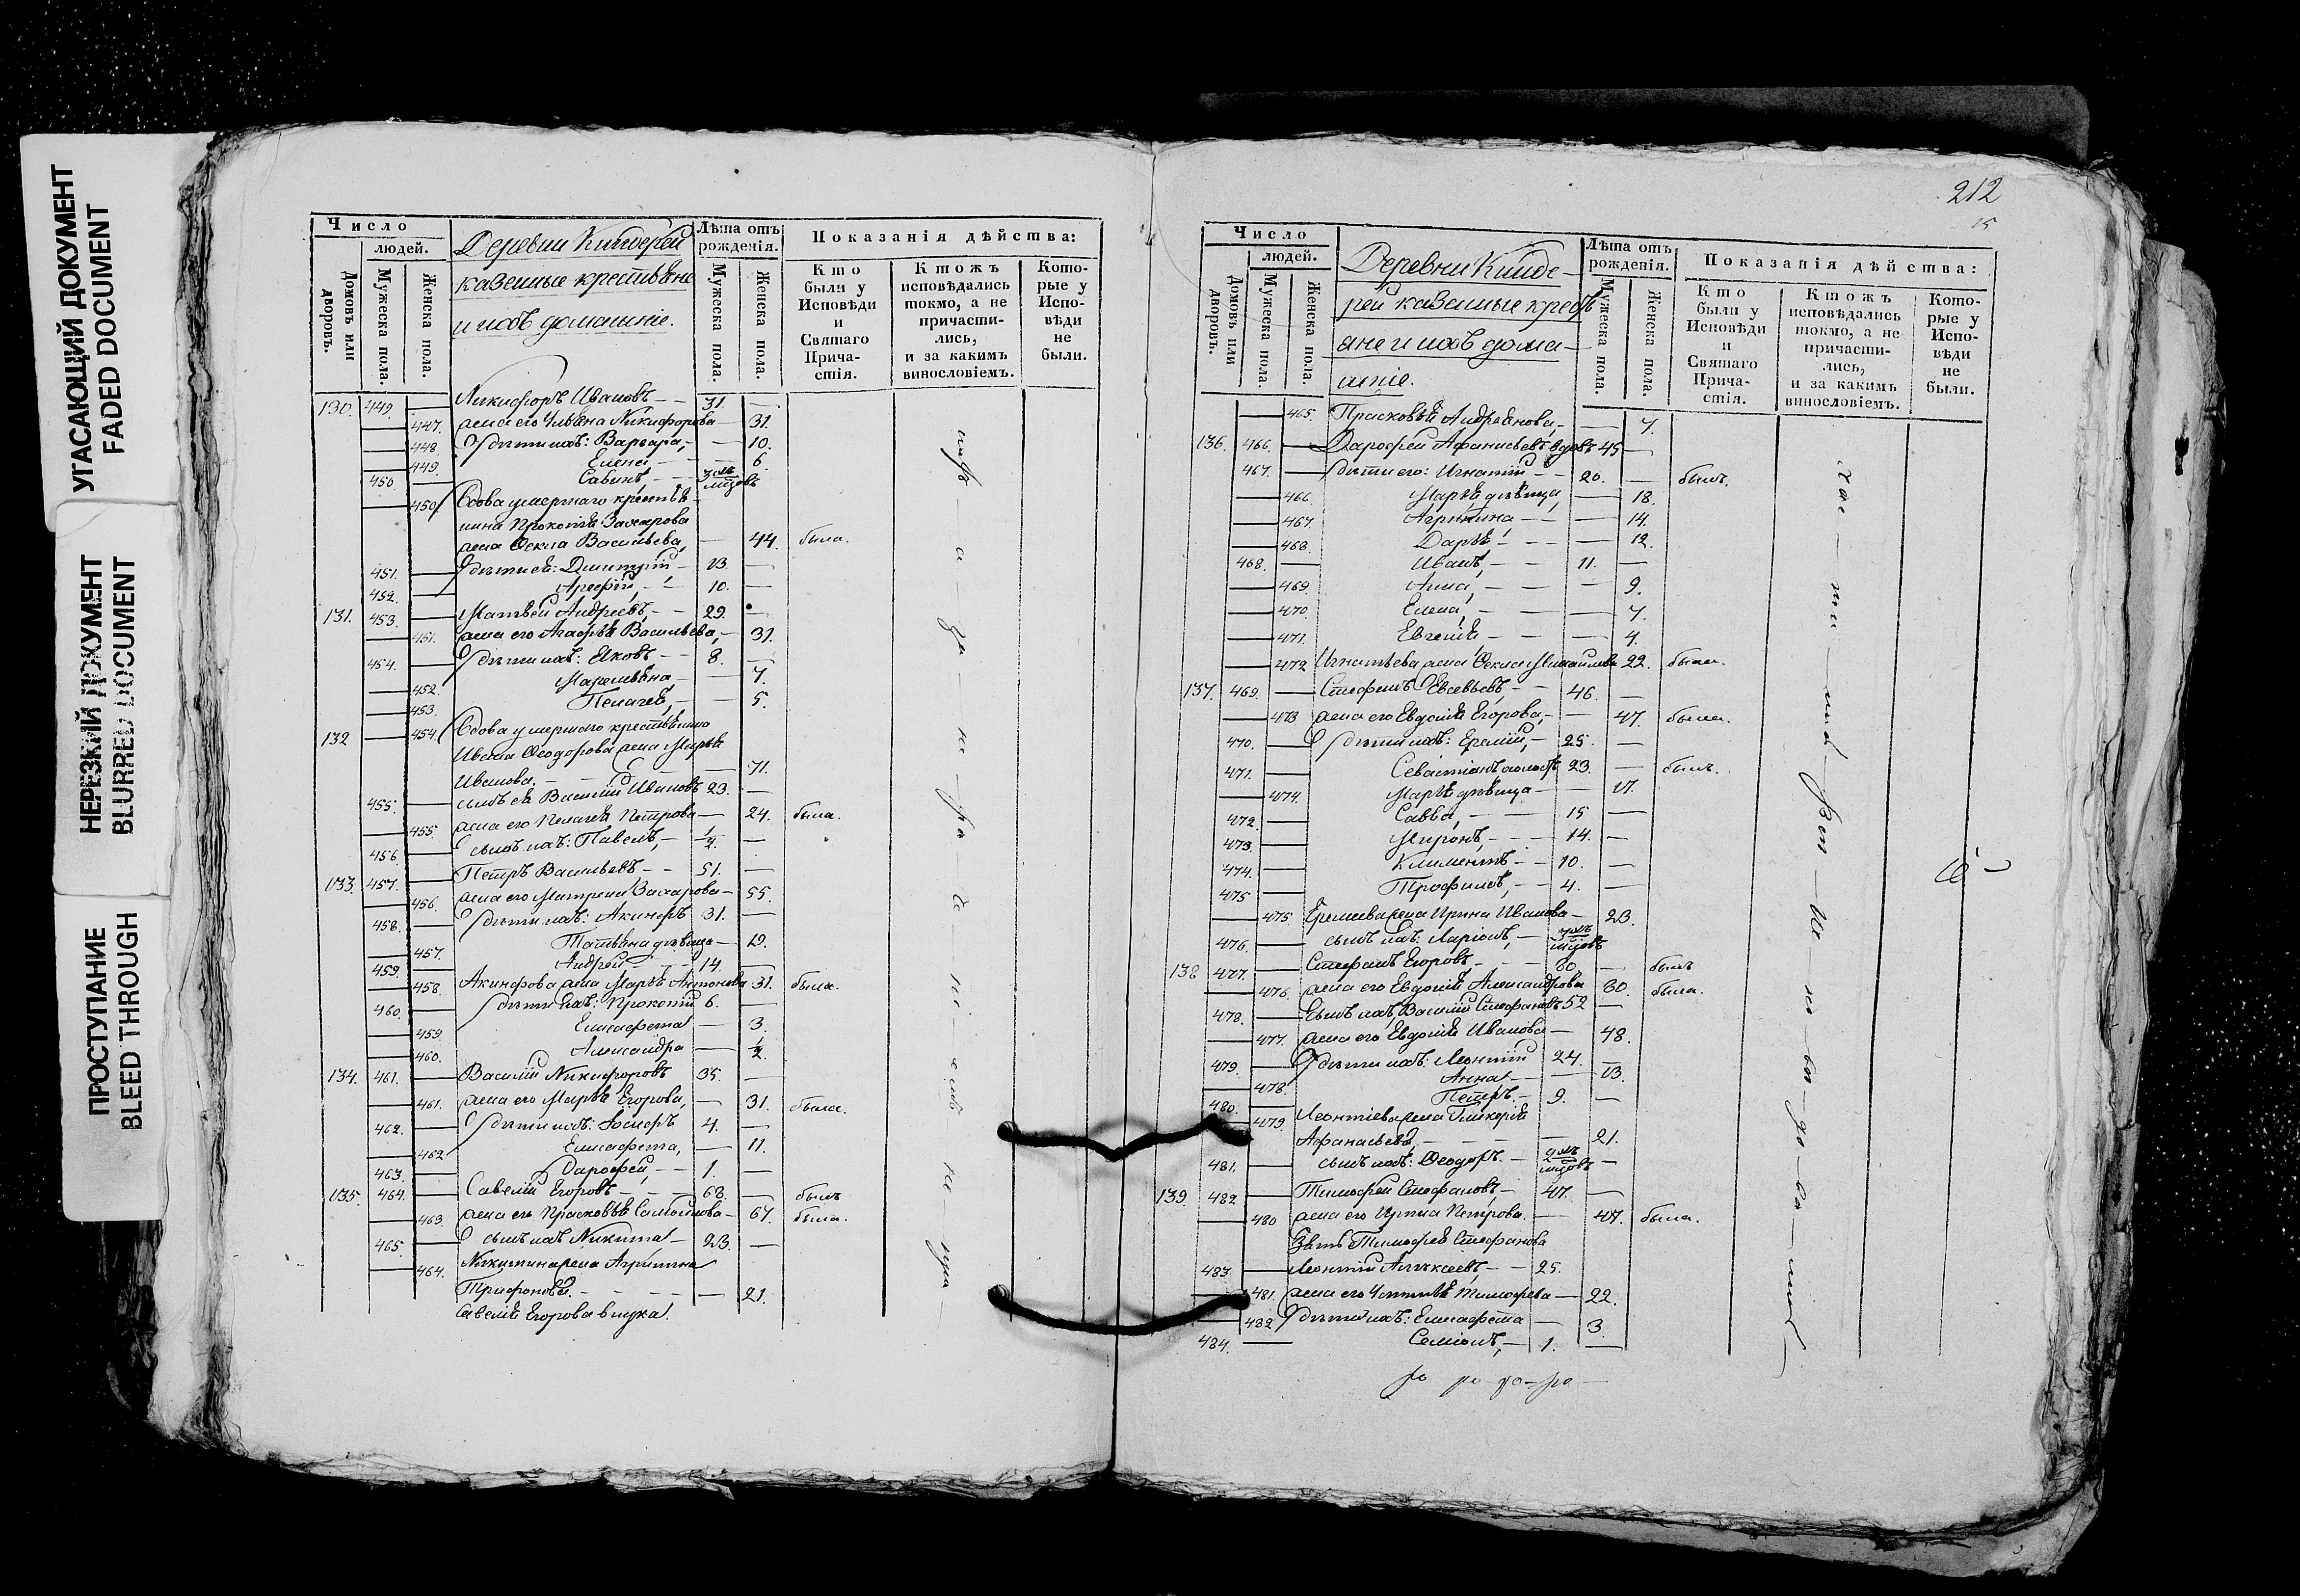 УГАСАЮЩИЙ ДОКУМЕНТ
FADED DOCUMENT
НЕРЕЗКИЙ ДОКУМЕНТ
BLURRED DOCUMENT
ПРОСТУПАНИЕ
BLEED THROUGH
Число
людей.
Домовъ или дворовъ.
Мужеска пола.
Женска пола.
Деревни Киндерей
казенные крестьяне
и ихъ домашніе.
Лѣта отъ рожденія.
Мужеска пола.
Женска пола.
Показанія дѣйства:
Кто были у Исповѣди и Святаго Прича-стія.
Ктожъ исповѣдались токмо, а не причасти-лись, и за какимъ винословіемъ.
Кото-рые у Испо-вѣди не были.
130. 449. Никифоръ Ивановъ 31.
447. жена его Никифорова 31.
448. дѣти ихъ: Варвара, 10.
449. Елена, 6.
450 Савинъ,
450 Вдова умершаго крестья-
нина Прокопія Захарова
жена Ѳекла Васильева, 44. была.
451. дѣти ея: Димитрій 13.
452. Арефій, 10.
131. 453. Матвей Андреевъ, 29.
451. жена его Агафья Васильева, 31.
454. дѣти ихъ: Яковъ 8.
452. Маремьяна 7.
453. Пелагея, 5.
132 454. Вдова умершаго крестьянина
Ивана Ѳеодорова жена Марья
Иванова. 71.
455. сынъ ея Василій Ивановъ 23.
455. жена его Пелагея Петрова 24. была.
456. сынъ ихъ: Павелъ, 1/2.
133. 457. Петръ Васильевъ 51.
456. жена его Матрена Захарова 55.
458. дѣти ихъ: Акинфъ 31.
457. Татьяна дѣвица 19.
459. Андрей 14.
458. Акинфова жена Марья Антонова 31. была.
460. дѣти ихъ: Прокопій 6.
459. Елисафета 3.
460. Александра 1/2.
134. 461. Василій Никифоровъ 35.
461. жена его Марья Егорова, 31. была.
462. дѣти ихъ: Іосифъ 4.
462. Елисафета, 11.
463. Дарофей, 1.
135. 464. Савелій Егоровъ 68. былъ
463. жена его Прасковья Самойлова 67. была.
465. сынъ ихъ Никита 23.
464. Никитина жена Агрипина
Трифонова. 21.
Савелія Егорова внука.
212
15
Число
людей.
Домовъ или дворовъ.
Мужеска пола.
Женска пола.
Деревни Кинде-
рей казенные крестъ
яне и ихъ дома-
шніе.
Лѣта отъ рожденія.
Мужеска пола.
Женска пола.
Показанія дѣйства:
Кто были у Исповѣди и Святаго Прича-стія.
Ктожъ исповѣдались токмо, а не причасти-лись, и за какимъ винословіемъ.
Кото-рые у Испо-вѣди не были.
465. Прасковья Андреянова, 7.
136. 466. Дарофей Афанасьевъ вдовъ 45
467. дѣти его: Игнатій 20. былъ.
466. Марья дѣвица, 18.
467. Агрипина 14.
468. Дарья 12.
468. Иванъ, 11.
469. Анна, 9.
470. Елена, 7.
471. Евгенія 4.
472 Игнатьева жена Ѳекла Михайлова 22. была.
137. 469. Стефанъ Евсевьевъ, 46.
473 жена его Евдокія Егорова, 47. была.
470. дѣти ихъ: Еремій, 25.
471. Севастіанъ 23. былъ.
474. Марья дѣвица 17.
472. Савва, 15
473. Миронъ, 14.
474. Климентъ 10.
475 Трофимъ, 4.
475 Еремеева жена Ирина Иванова 23.
476. сынъ ихъ: Ларіонъ,
138 477. Стефанъ Егоровъ, 80. былъ
476. жена его Евдокія Александрова 80. была.
478. Сынъ ихъ Василій Стефановъ 52
477. жена его Евдокія Иванова 48.
479. дѣти ихъ: Леонтій 24.
478 Анна 13.
480. Петръ. 9.
479 Леонтіева жена Гликерія
Афанасьева, 21.
481. сынъ ихъ: Ѳеодоръ.
139. 482. Тимофей Стефановъ 47.
480 жена его Ирина Петрова. 47. была.
Зять Тимофея Стефанова
483 Леонтій Алексеевъ, 25.
481. жена его Тимофева 22.
482 дѣти ихъ: Елисафета 3.
484. Семіонъ, 1.